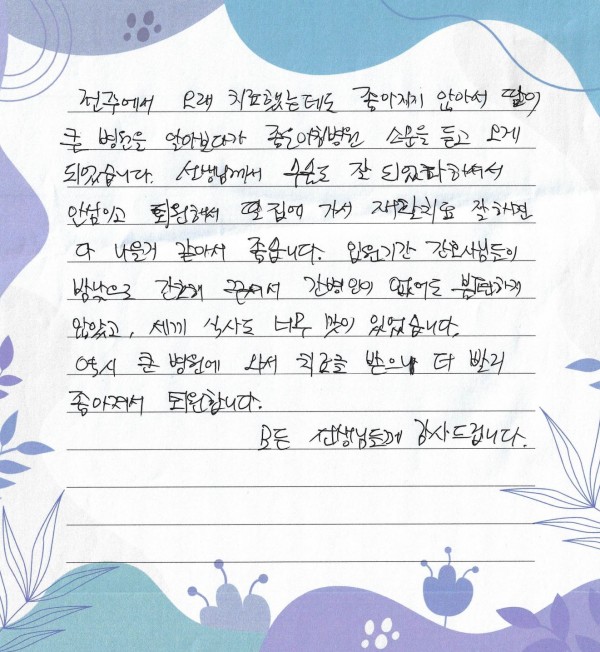 전주에서 오래 치료했는데도 좋아지지 않아서 딸이
큰 병원을 알아보다가 좋은아침병원 소문을 듣고 오게
되었습니다. 선생님께서 수술도 잘 되었다 하셔서
안심이고 퇴원해서 딸집에 가서 재활치료 잘하면
다 나을거 같아서 좋습니다. 입원기간 간호사님들이
밤낮으로 간호해 주셔서 간병인이 없어도 불편하게
않았고, 세끼 식사도 너무 맛이 있었습니다.
역시 큰 병원에 와서 치료를 받으니 더 빨리
좋아져서 퇴원합니다.
모든 선생님들께 감사드립니다.